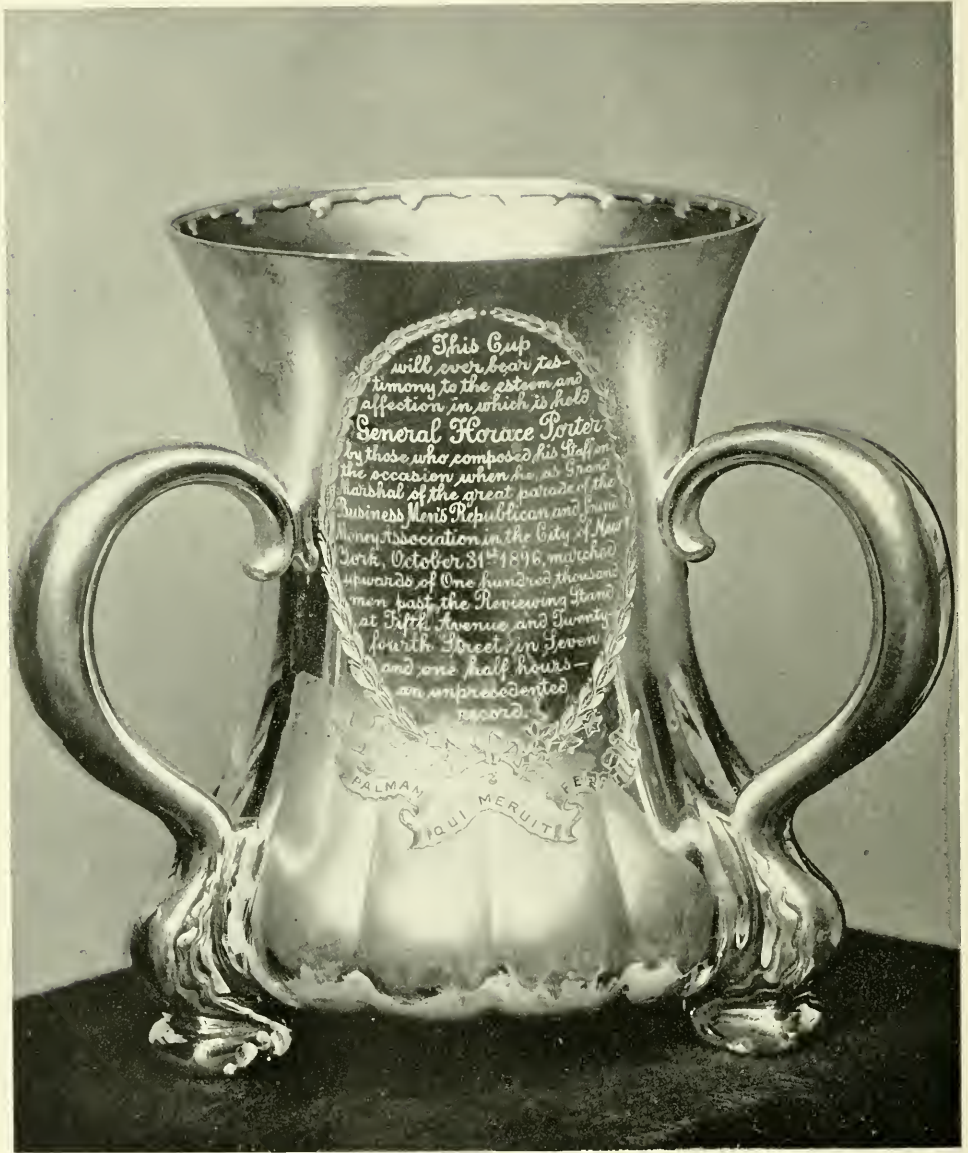 This Cup
will ever bear tes-
timony to the esteem and
affection in which is held
General Horace Porter
by those who composed his Staff on
the occasion when he, as Grand
Marshal of the great parade of the
Business Men's Republican and Sound
Money Association in the City of New
York, October 31st 1896, marched
upwards of One hundred thousand
men past the Reviewing Stand
at Fifth Avenue and Twenty-
fourth Street, in Seven
and one half hours—
an unprecedented
record.
PALMAM
QUI MERUIT
FERAT